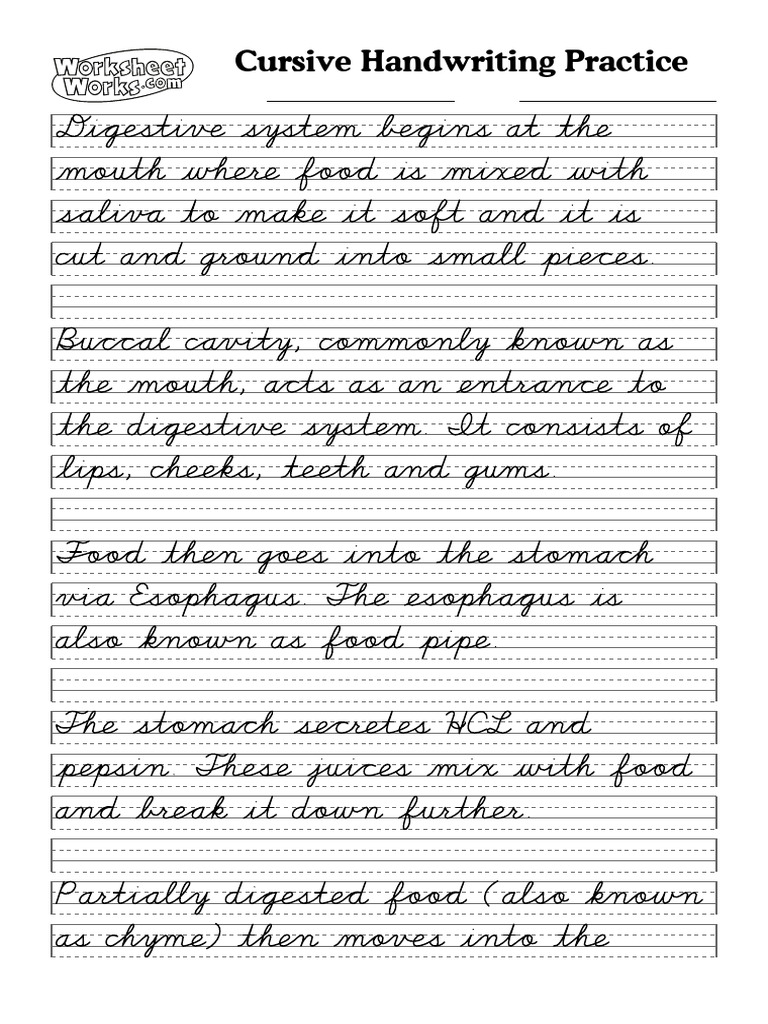 Worksheet
Works.com
Cursive Handwriting Practice
Digestive system begins at the
mouth where food is mixed with
saliva to make it soft and it is
cut and ground into small pieces.
Buccal cavity, commonly known as
the mouth, acts as an entrance to
the digestive system. It consists of
lips, cheeks, teeth and gums.
Food then goes into the stomach
via Esophagus. The esophagus is
also known as food pipe.
The stomach secretes HCL and
pepsin. These juices mix with food
and break it down further.
Partially digested food (also known
as chyme) then moves into the